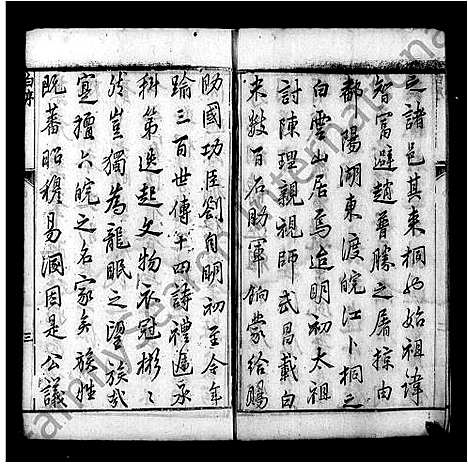 之諸邑其來桐的始祖諱
智富避趙普勝之屠掠由
鄱陽湖東渡皖江卜桐之
白雲山居焉迨明初太祖
討陳理親視師武昌載白
米数百石助軍餉蒙給賜
助國功臣劄自明初至今年
踰三百世傳十四詩禮逓承
科第迭起文物衣冠彬〻
然豈獨為龍眠之望族哉
寔擅六皖之名家矣族姓
既蕃昭穆易溷因是公議
三